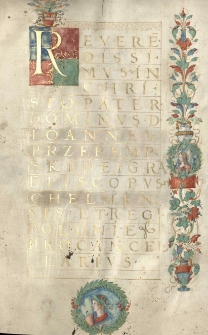 REVERE
DISSI
MVS IN
CHRI
STO PATER
DOMINVS D
IOANNES
PRZEREMP
SKI DEI GRA
EPISCOPVS
CHELMEN
SIS ET REG
POLONIE
PROCANCEL
LARIVS